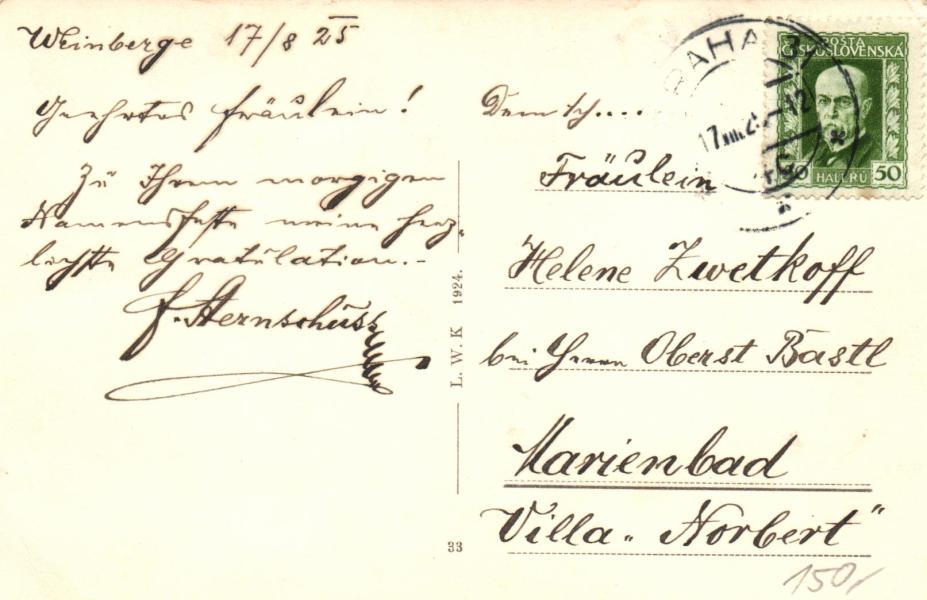 Weinberge 17/8 25
Geehrtes Fräulein!
Zu Ihrem morgigen
Namensfeste meine herz-
lichste Gratulation.-
F. Sternschuss
L. W. K 1924.
33
PRAHA
17.VIII.25.-12
POŠTA
ČESKOSLOVENSKÁ
50 HALÉŘŮ 50
Fräulein
Helene Zwetkoff
bei Herrn Oberst Bastl
Marienbad
Villa „Norbert"
150/